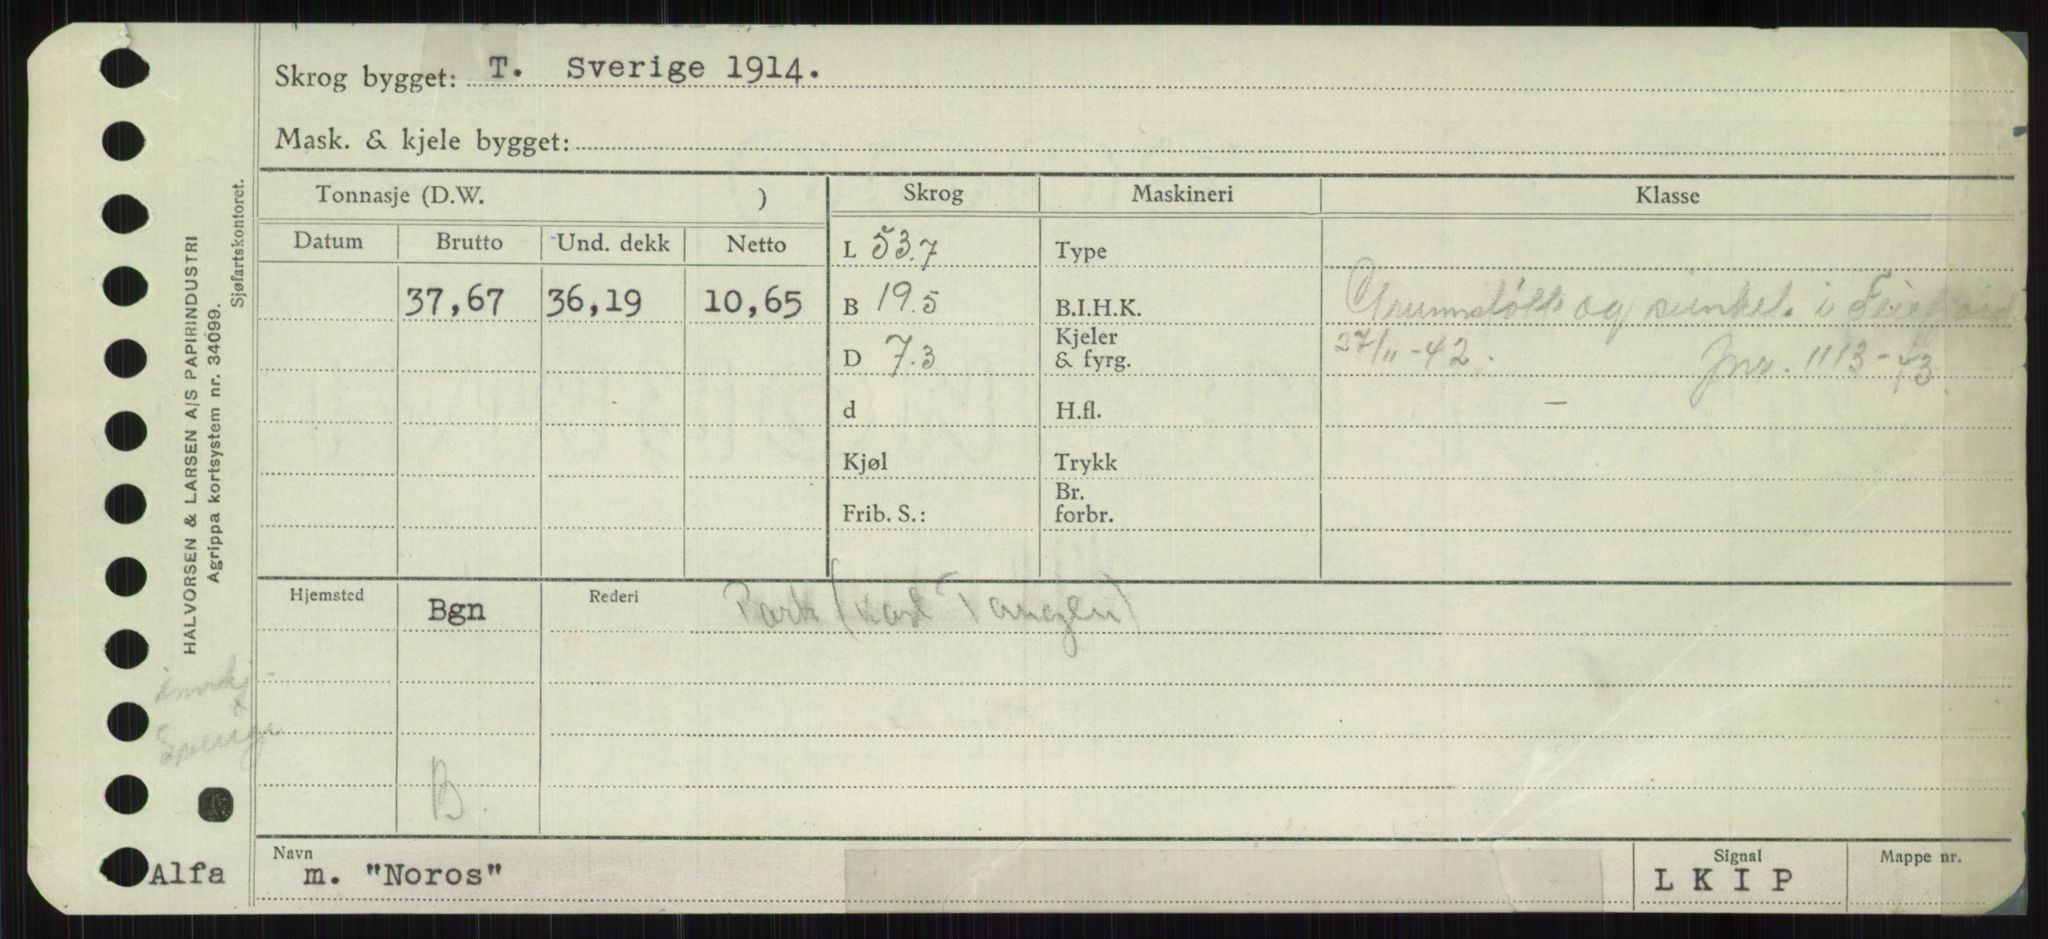 Skrog bygget: T. Sverige 1914.
Mask. & kjele bygget:
Tonnasje (D.W. )
Skrog
Maskineri
Klasse
Datum
Brutto
Und. dekk
Netto
37,67
36,19
10,65
L 53.7
B 19.5
D 7.3
d
Kjøl
Frib. S.:
Type
B.I.H.K.
Kjeler
& fyrg.
H.fl.
Trykk
Br.
forbr.
og i
27/11-42. Jnr. 1113-43.
Hjemsted
Bgn
Rederi
Park (Karl Tangen)
B.
HALVORSEN & LARSEN A/S PAPIRINDUSTRI
Agrippa kortsystem nr. 34099.
Sjøfartskontoret.
Sverige
Alfa
Navn
m. "Noros"
Signal
L K I P
Mappe nr.